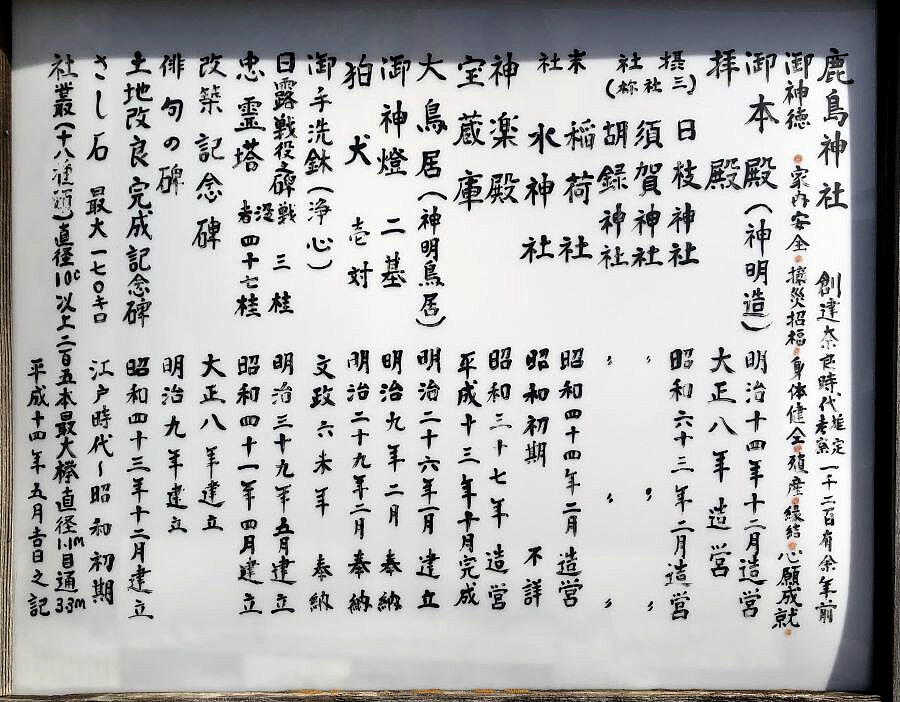 鹿島神社 創建奈良時代 推定考察 一千二百有余年前
御神徳 家内安全 攘災招福 身体健全 殖産 縁結 心願成就
御本殿(神明造) 明治十四年十二月造営
拝殿 大正八年造営
摂社(三社祢) 日枝神社 昭和六十三年二月造営
須賀神社 〃 〃 〃
胡録神社 〃 〃 〃
末社 稲荷社 昭和四十四年二月造営
水神社 昭和初期 不詳
神楽殿 昭和三十七年造営
宝蔵庫 平成十三年十月完成
大鳥居(神明鳥居) 明治二十六年一月建立
御神燈 二基 明治九年二月奉納
狛犬 壱対 明治二十九年二月奉納
御手洗鉢(浄心) 文政六未年 奉納
日露戦役之碑 三桂 明治三十九年五月建立
忠霊塔 戦没者四十七桂 昭和四十一年四月建立
改築記念碑 大正八年建立
俳句の碑 明治九年建立
土地改良完成記念碑 昭和四十三年十二月建立
さし石 最大一七〇キロ 江戸時代~昭和初期
社叢(十八種類)直径10c以上二百五本最大欅直径1.1m目通3.3m
平成十四年五月吉日之記